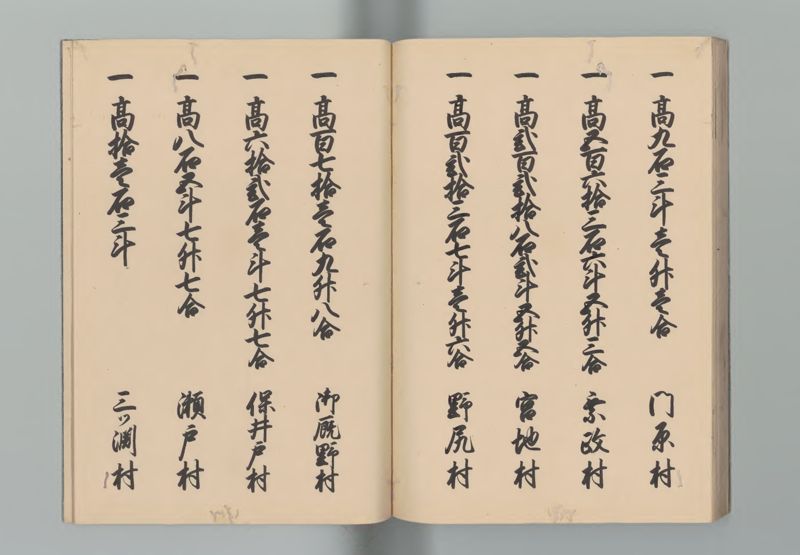 一 高九石三斗壱升壱合 門原村
一 高五百六拾三石六斗五升三合 粟政村
一 高弐百弐拾八石弐斗五升五合 宮地村
一 高百弐拾三石七斗壱升六合 野尻村
一 高百七拾壱石九升八合 御厩野村
一 高六拾弐石壱斗七升七合 保井戸村
一 高八石五斗七升七合 瀬戸村
一 高拾壱石三斗 三ツ渕村